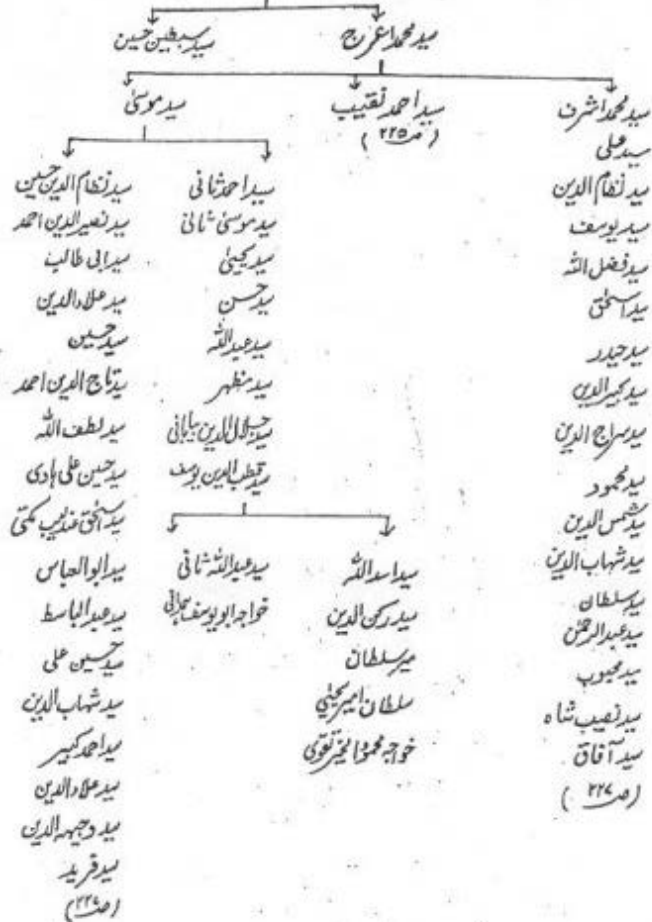 سید محمد اعرج
سید سبطین حسین
سید محمد اشرف
سید علی
سید نظام الدین
سید یوسف
سید فضل اللہ
سید اسحٰق
سید حیدر
سید کبیر الدین
سید سراج الدین
سید محمود
سید شمس الدین
سید شہاب الدین
سید سلطان
سید عبدالرحمٰن
سید محبوب
سید نصیب شاہ
سید آفاق
(ص ۲۲۷)
سید احمد نقیب
(ص ۲۲۵)
سید موسیٰ
سید احمد ثانی
سید موسیٰ ثانی
سید یحییٰ
سید حسن
سید عبداللہ
سید مظہر
سید جلال الدین بیابانی
سید قطب الدین یوسف
سید اسد اللہ
سید رکن الدین
میر سلطان
سلطان امیر یحییٰ
خواجہ محمود الخیر تقوی
سید عبداللہ ثانی
خواجہ ابو یوسف
سید نظام الدین حسین
سید نصیر الدین احمد
سید ابی طالب
سید علاء الدین
سید حسین
سید تاج الدین احمد
سید لطف اللہ
سید حسین علی ہادی
سید اسحٰق عندلیب مکّی
سید ابو العباس
سید عبد الباسط
سید حسین علی
سید شہاب الدین
سید احمد کبیر
سید علاء الدین
سید وجیہہ الدین
سید فرید
(ص ۲۲۷)